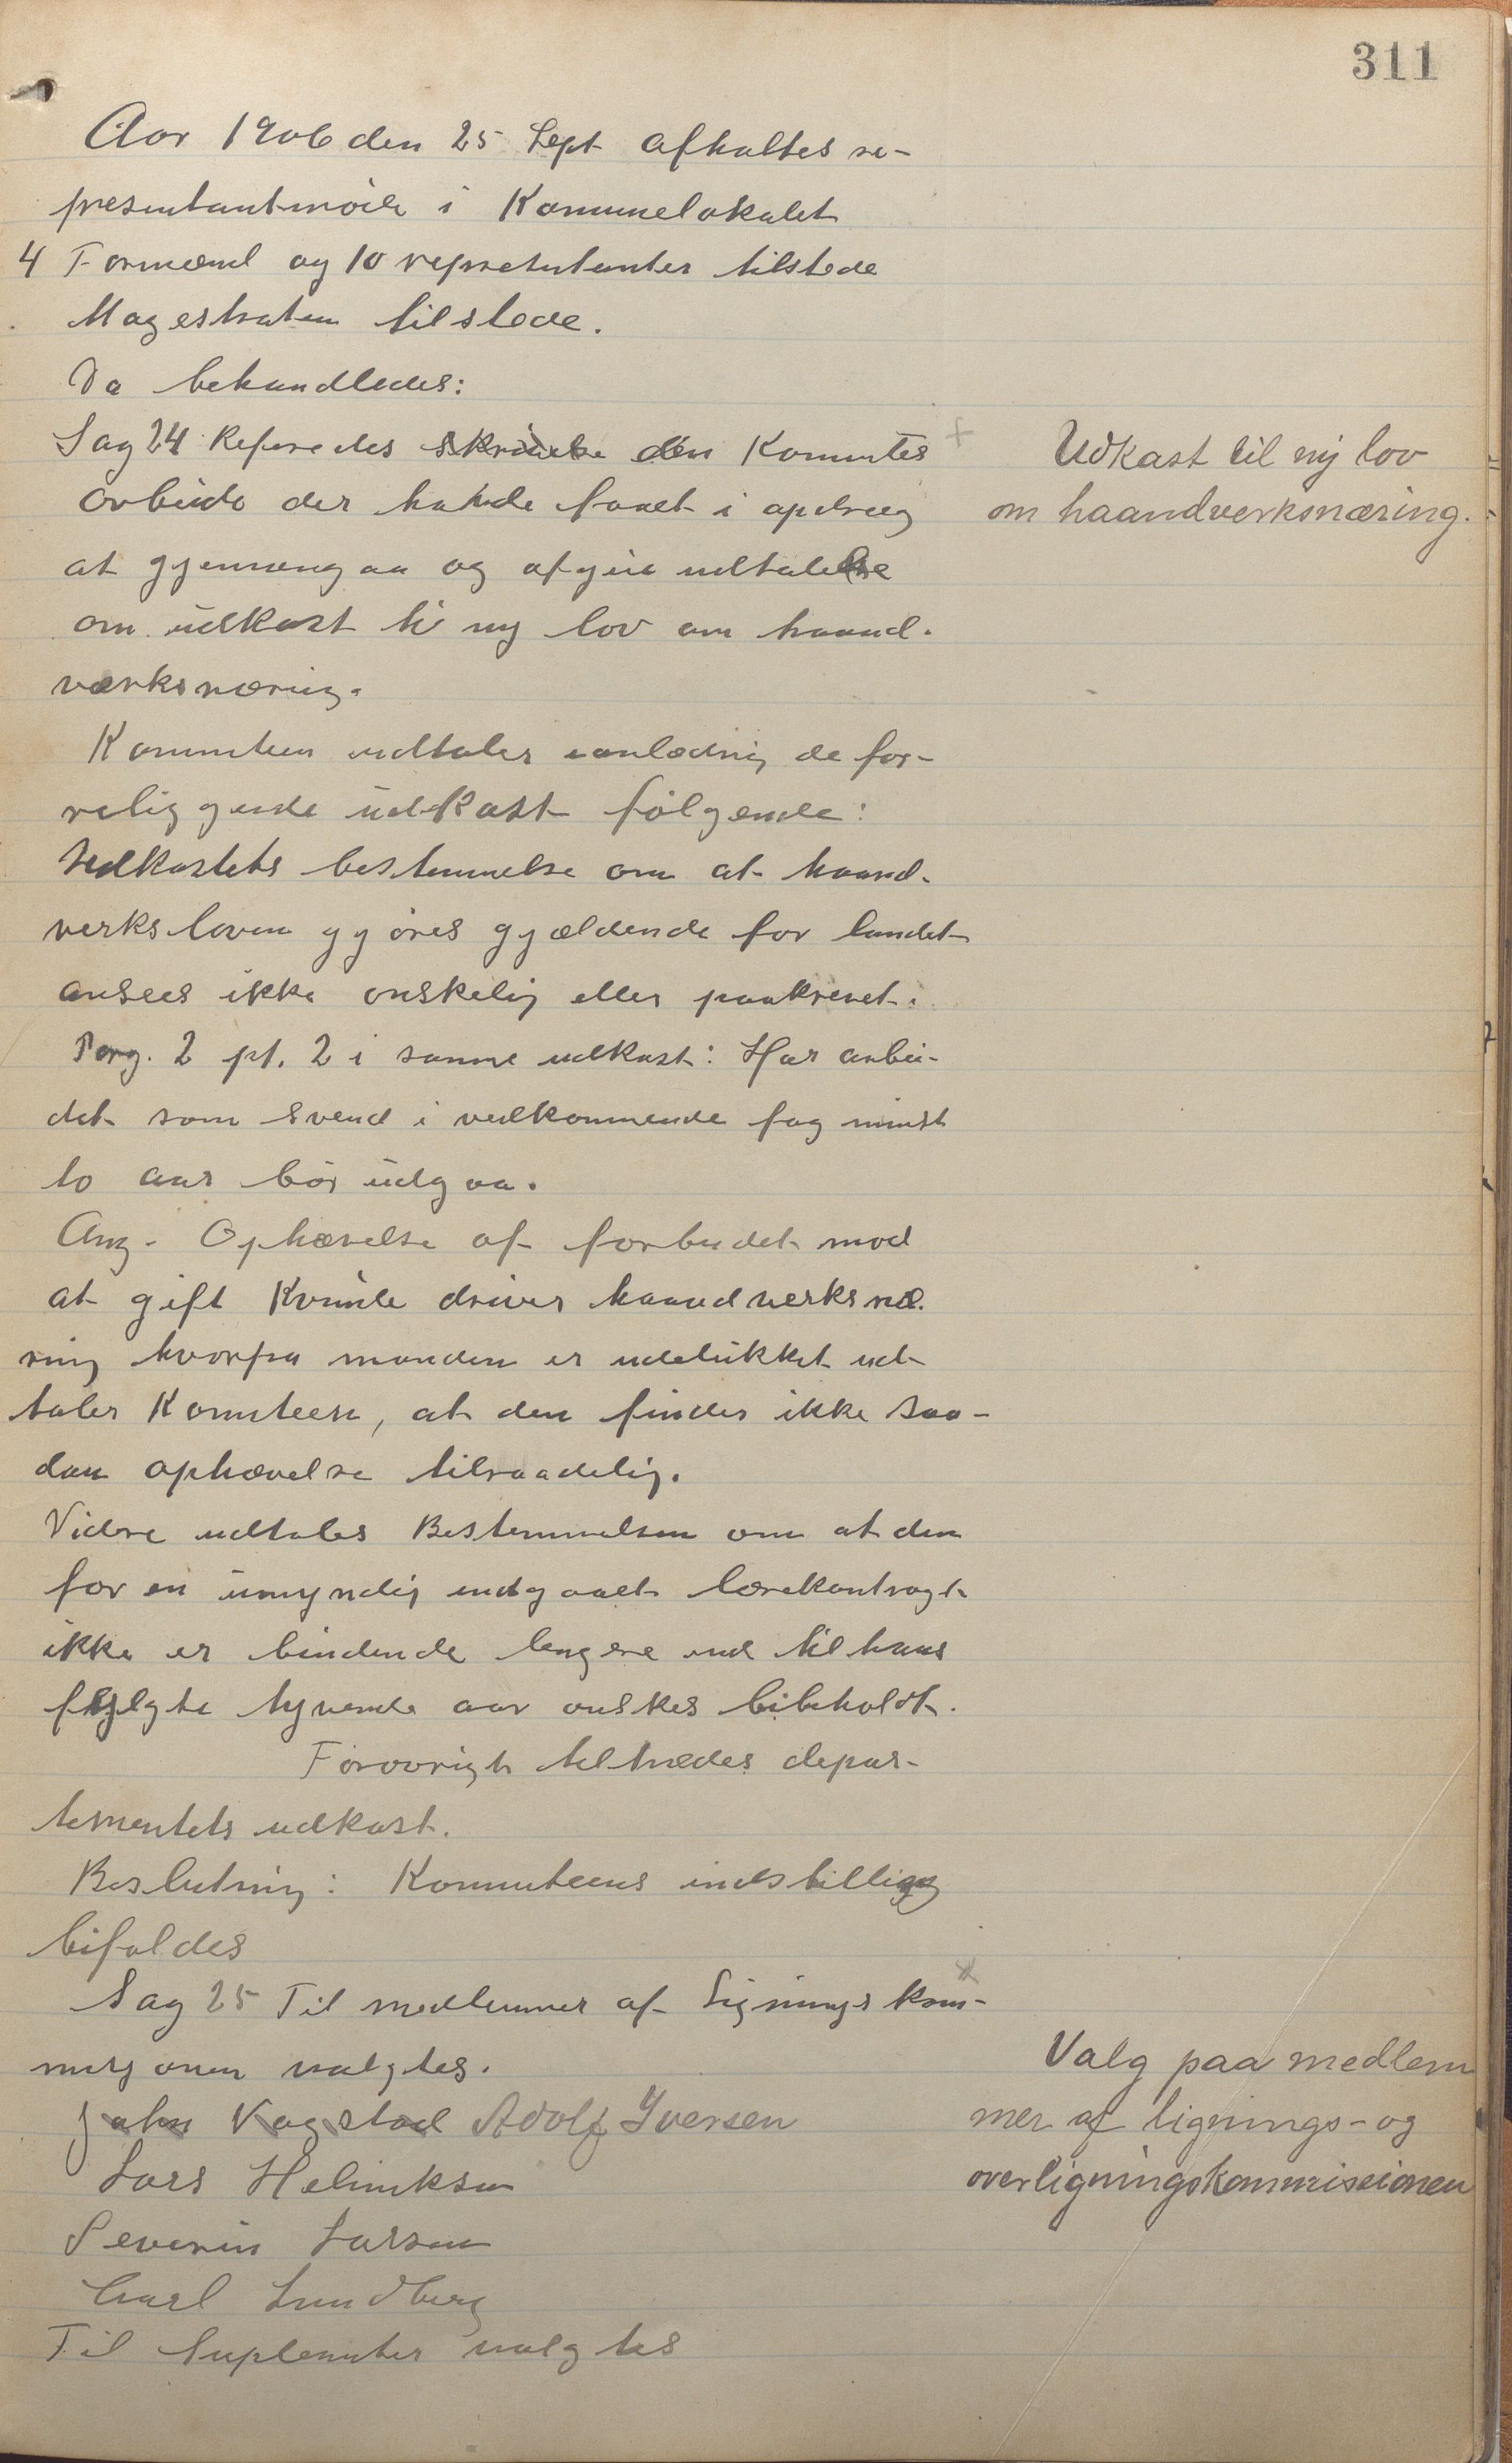 311
Aar 1906 den 25 Sept afholtes re-
presentantmöde i Kommunelokalet
4 Formænd og 10 representanter tilstede
Magestraten tilstede.
Da behandledes:
Sag 24 Referedes den Komites
arbeide der havde faaet i opdrag
at gjennemgaa og afgive udtalelse
om udkast til ny lov om haand-
værksnæring.
Komiteen udtaler i anledning de for-
religgende udkast følgende:
Udkastets bestemmelse om at haand-
verksloven gjöres gjældende for landet
ansees ikke onskelig eller paakrevet.
Parg. 2 pt. 2 i samme udkast: Har arbei-
det som svend i vedkommende fag minst
to aar bör udgaa.
Ang. Ophævelse af forbudet mod
at gift Kvinde driver haandverksnæ-
ring hvorfra manden er udelukket ud-
taler Komiteen, at den finder ikke saa-
dan ophævelse tilraadelig.
Videre udtales Bestemmelsen om at den
for en umyndig indgaaet lærekontragt
ikke er bindende længere end til hans
fylgte tyvende aar onskes bibeholdt.
Forovrigt tiltrædes depar-
tementets udkast.
Beslutning: Komiteens indstilling
bifaldes
Sag 25 Til medlemmer af Ligningskom-
misjonen valgtes.
John Vagstad Adolf Iversen
Lars Helmiksen
Severin Larsen
Carl Lundberg
Til Suplenter valgtes
Udkast til ny lov
om haandverksnæring.
Valg paa medlem
mer af lignings- og
overligningskommissionen